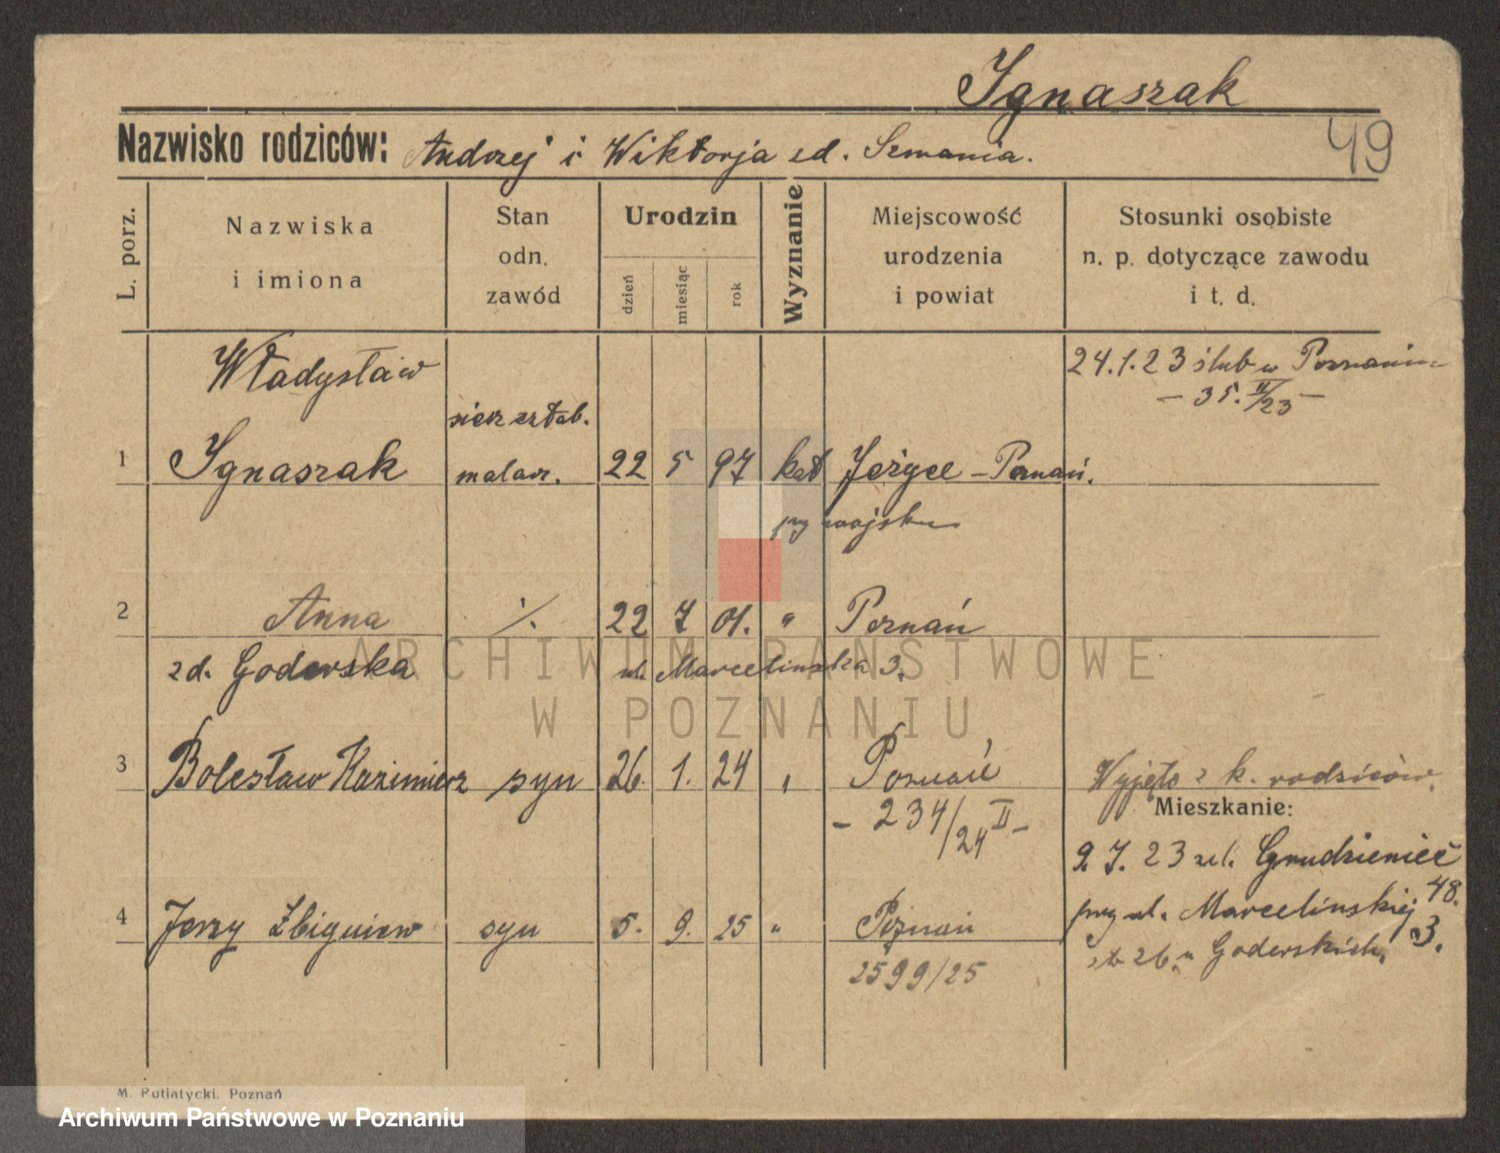 Ignaszak
49
Nazwisko rodziców: Andrzej i Wiktorja zd. Szmania.
L. porz.
Nazwiska i imiona
Stan odn. zawód
Urodzin
dzień miesiąc rok
Wyznanie
Miejscowość urodzenia i powiat
Stosunki osobiste n. p. dotyczące zawodu i t. d.
Władysław
24.1.23 ślub w Poznaniu
- 35. II/23 -
1 Ignaszak malarz. 22 5 97 kat Jeżyce - Poznań.
przy wojsku
2 Anna ./. 22 7 01. " Poznań
zd. Goderska ul. Marcelinska 3.
3 Bolesław Kazimierz syn 26. 1. 24 " Poznań
Wyjęto z k. rodziców.
- 234/24 II -
Mieszkanie:
2 7. 23 Grudzieniec 48.
4 Jerzy Zbigniew syn 5. 9. 25 " Poznań
przy ul. Marcelinskiej 3.
2599/25
26. u Goderskich.
M. Putiatycki. Poznań
ARCHIWUM PAŃSTWOWE
W POZNANIU
Archiwum Państwowe w Poznaniu